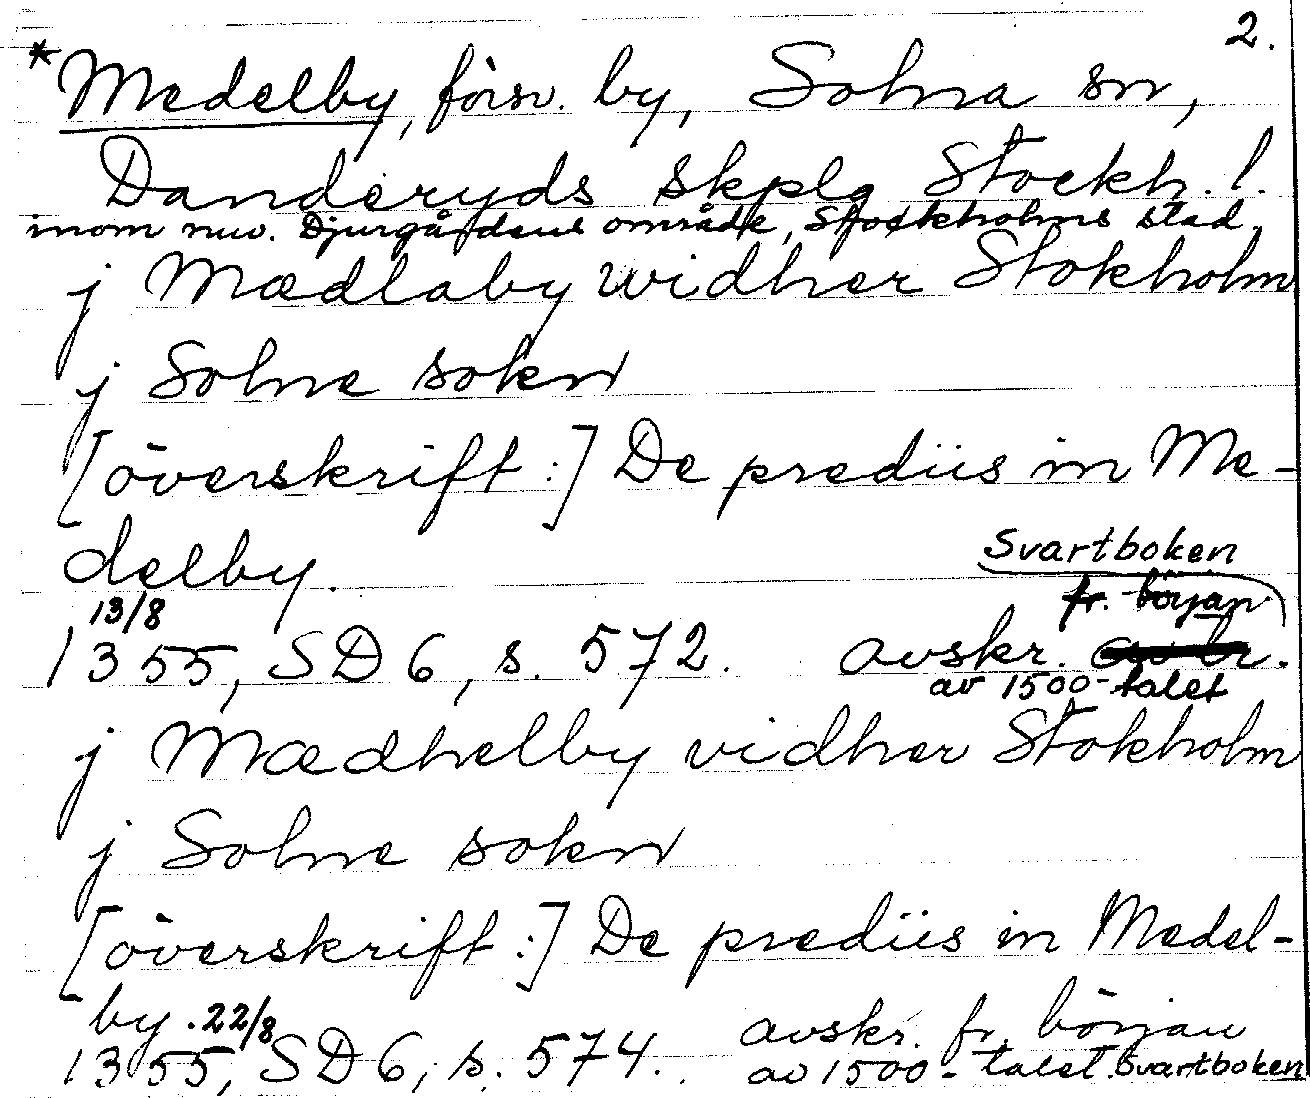 2.
* Medelby, försv. by, Solna sn,
Danderyds skplg Stockh. l.
inom nuv. Djurgårdens område, Stockholms stad.
j Mædlaby widher Stokholm
j Solne sokn
[överskrift:] De prediis in Me-
delby.
Svartboken
fr. början
13/8
1355, SD 6, s. 572. avskr.
av 1500-talet
j Mædhelby vidher Stokholm
j Solne sokn
[överskrift:] De prediis in Medel-
by. 22/8 avskr. fr. början
1355, SD 6, s. 574. av 1500-talet. Svartboken